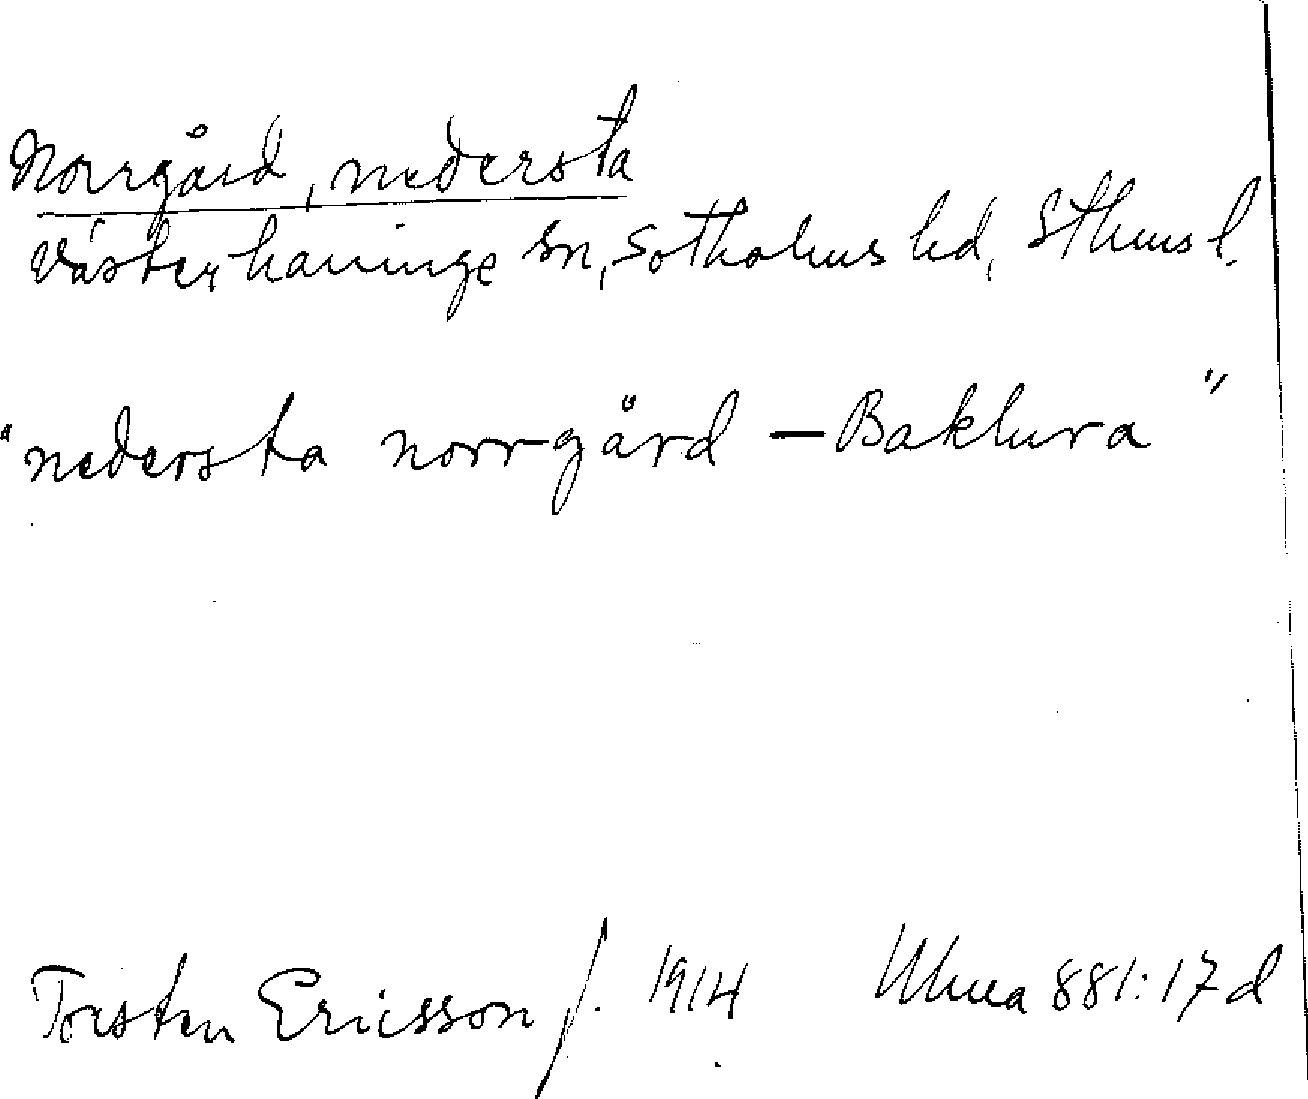 Norrgård, nedersta
Västerhaninge sn, Sotholms hd, Sthms l.
"nedersta norrgård — Baklura"
Torsten Ericsson f. 1914 881:17 d